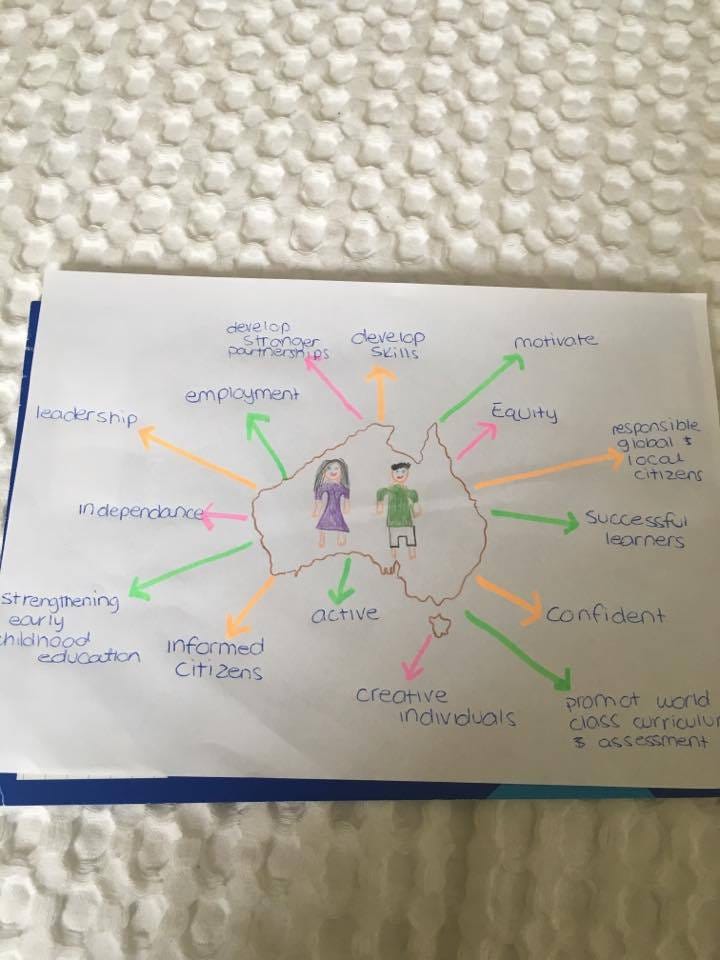 develop
stronger
partnerships
develop
skills
motivate
employment
Equity
leadership
responsible
global &
local
citizens
independance
successful
learners
strengthening
early
childhood
education
active
confident
informed
citizens
creative
individuals
promot world
class curriculum
& assessment